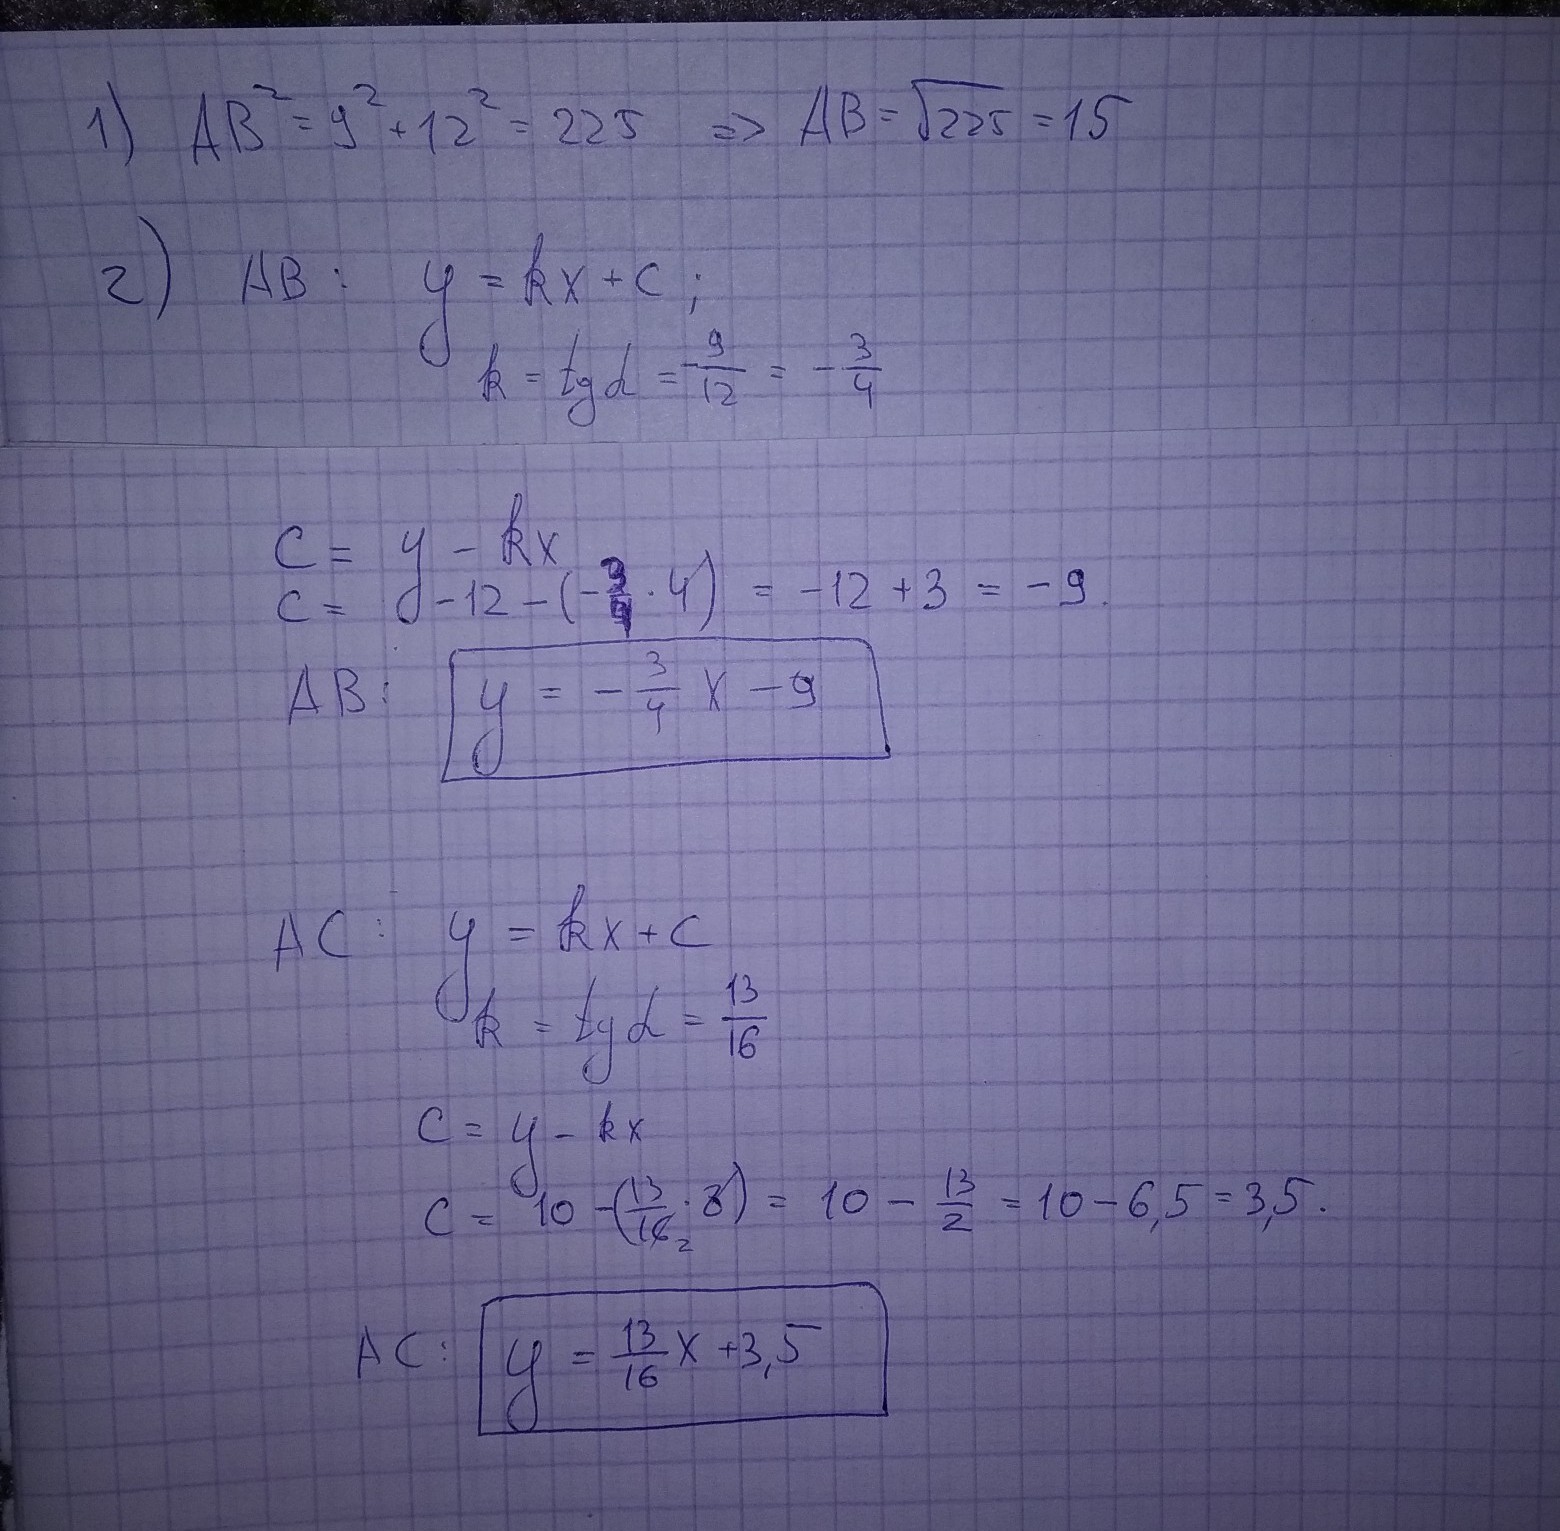 1) AB² = 9² + 12² = 225 => AB = √225 = 15
2) AB: y = kx + c;
k = tg α = -9/12 = -3/4
c = y - kx
c = -12 - (-3/4 · 4) = -12 + 3 = -9.
AB: y = -3/4 x - 9
AC: y = kx + c
k = tg α = 13/16
c = y - kx
c = 10 - (13/16 2 · 8) = 10 - 13/2 = 10 - 6,5 = 3,5.
AC: y = 13/16 x + 3,5